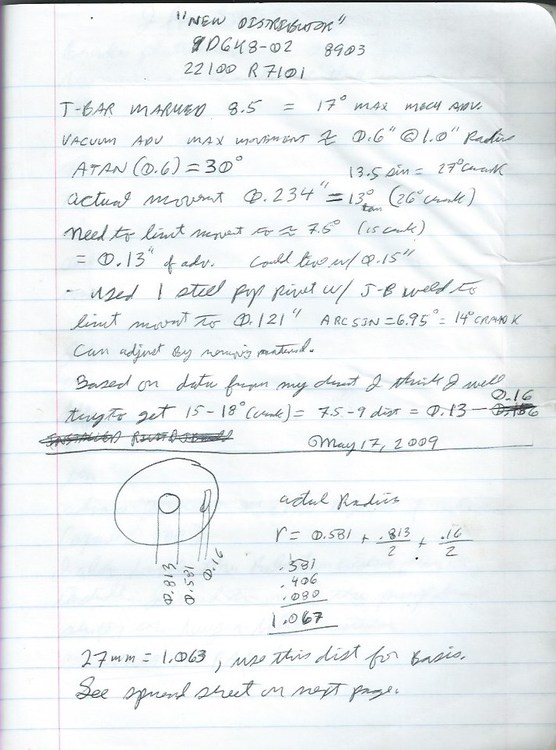 "NEW DISTRIBUTOR"
D6K8-02 8903
22100 R7101
T-BAR MARKED 8.5 = 17° MAX MECH ADV.
VACUUM ADV MAX MOVEMENT ≈ 0.6" @ 1.0" Radius
ATAN (0.6) = 30° 13.5 sin = 27° Crank
actual movemt 0.234" = 13° tan (26° crank)
need to limit movemt to ≈ 7.5° (15 crank)
= 0.13" of adv. Could live w/ 0.15"
- used 1 steel pop rivet w/ J-B weld to
limit movemt to 0.121" ARCSIN = 6.95° = 14° CRANK
Can adjust by removing material.
Based on data from my dist I think I will
try to get 15-18° (crank) = 7.5-9 dist = 0.13 - 0.16
May 17, 2009
actual Radius
r = 0.581 + .813/2 + .16/2
.581
.406
.080
1.067
0.813
0.581
0.16
27mm = 1.063, use this dist for basis.
See spread sheet on next page.